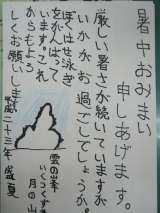 暑中おみまい
申しあげます。
厳しい暑さが続いていますが
いかがお過ごしでしょうか。
ぼくはせ泳ぎ
をがんばって
います。これ
からもよろ
しくお願いします。
平成二十三年 盛夏
雲の峯
いくつくずれ
月の山